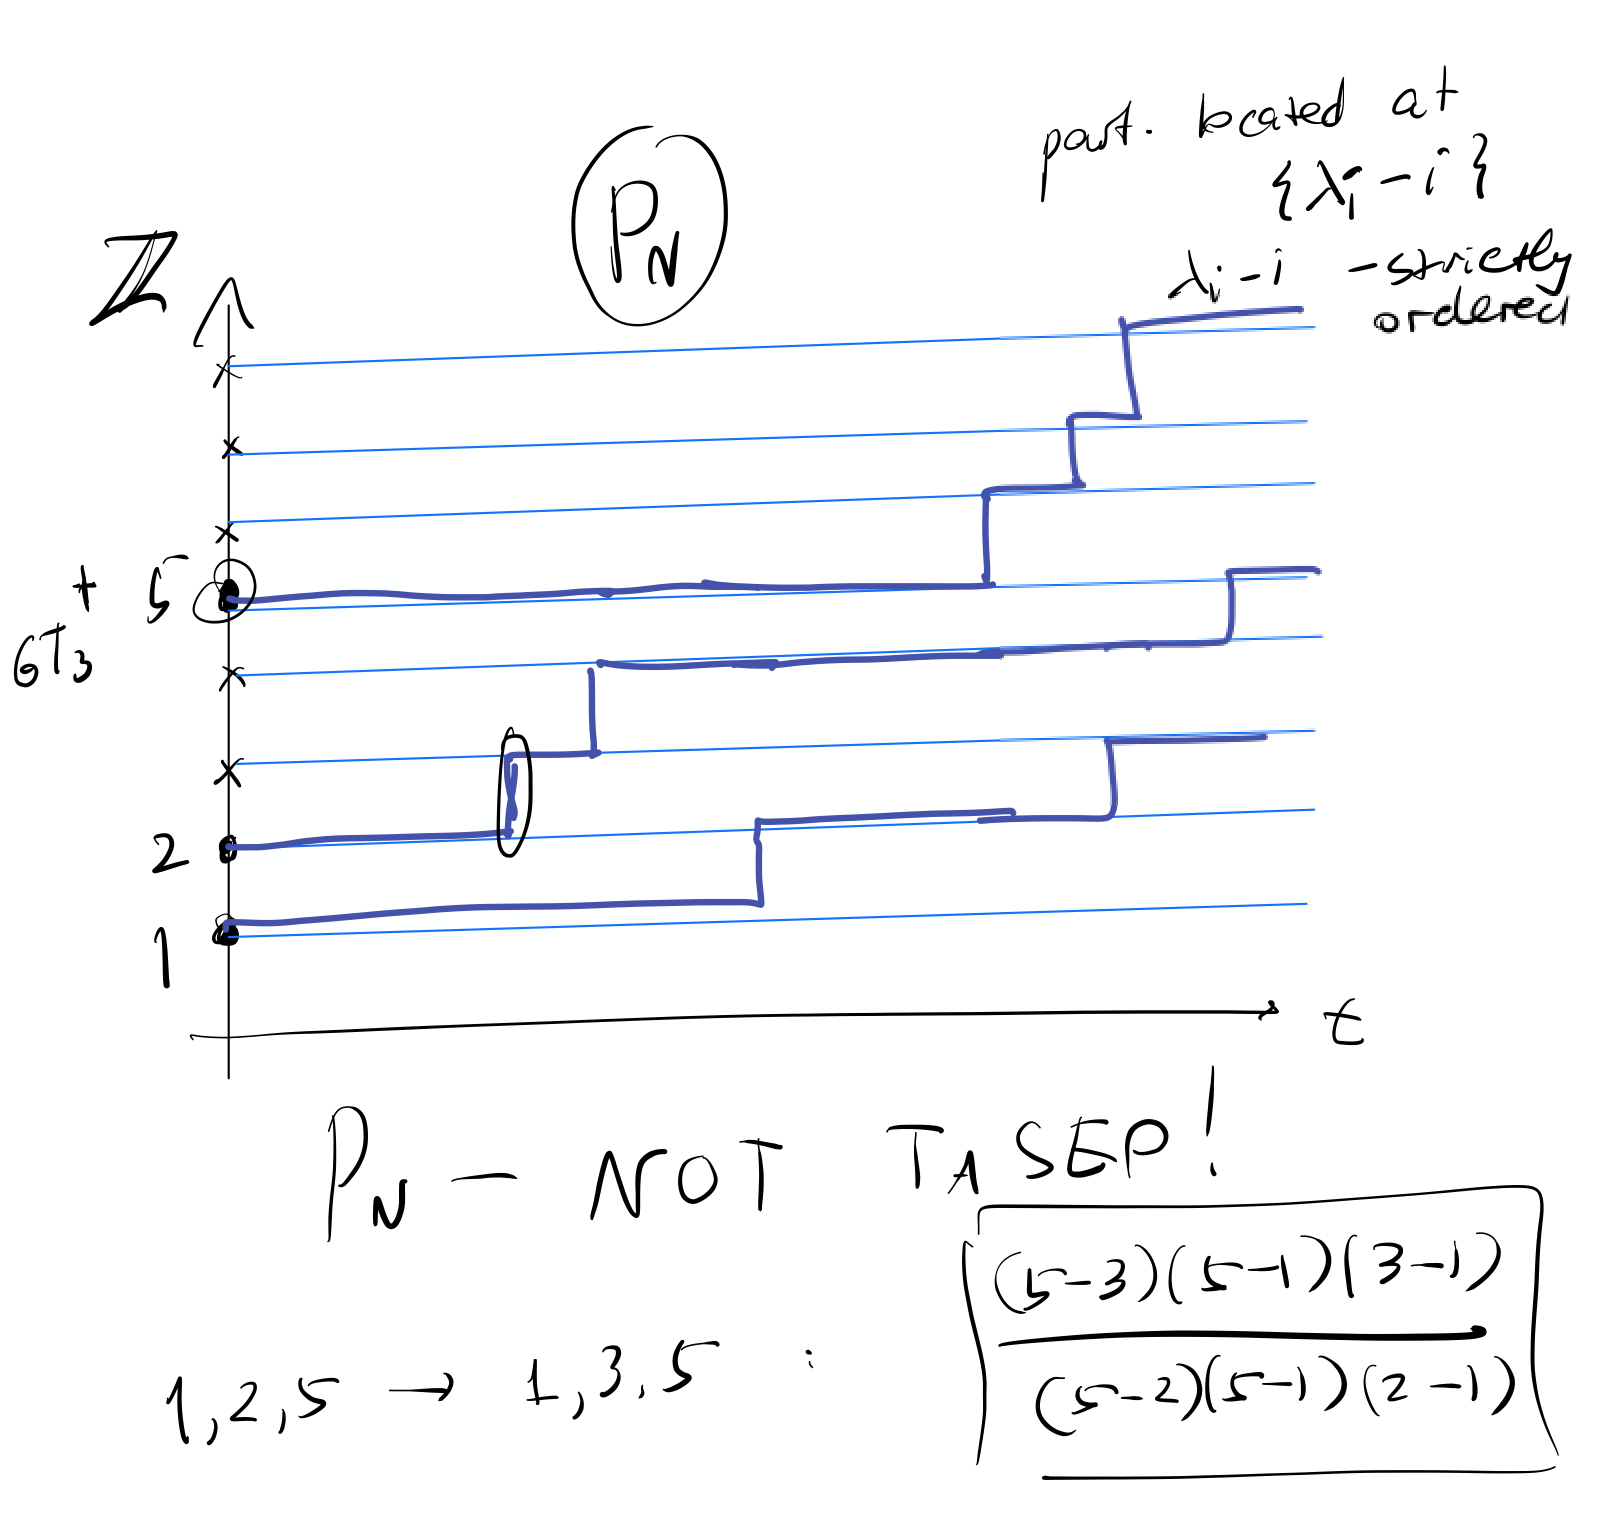 part. located at
{λi - i}
λi - i - strictly
ordered
P_N
ℤ
5
GT₃⁺
2
1
t
P_N - NOT TASEP!
1,2,5 → 1,3,5 :
(5-3)(5-1)(3-1)
(5-2)(5-1)(2-1)